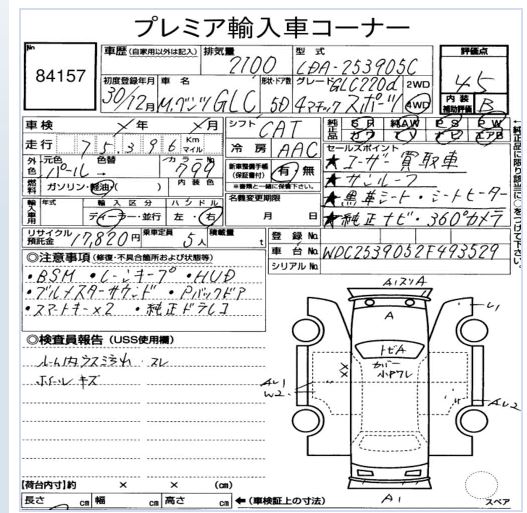 プレミア輸入車コーナー
No 84157
車歴 (自家用以外は記入) 排気量 2100 型式 LDA-253905C 評価点 4.5
初度登録年月 30/12月 車名 M.ベンツ GLC 形状・ドア数 5D グレード GLC220d 4マチック スポーツ 2WD 4WD 内装補助評価 B
車検 年 月 シフト CAT 純正部品 SR AW PS PW カワ TV ナビ エアB
走行 75396 Km マイル 冷房 AAC セールスポイント
★ユーザー買取車
外色 元色 パール 色替 カラーNo 799 新車整備手帳 (保証書付) 有・無 ※書類と一緒に保管下さい。
★サンルーフ
燃料 ガソリン・軽油( ) 内装色
★黒革シート・シートヒーター
輸入車用 年式 輸入区分 ディーラー・並行 ハンドル 左・右 名義変更期限 月 日
★純正ナビ・360°カメラ
←純正品に限り該当に○をつけて下さい。
リサイクル預託金 17,820円 乗車定員 5人 積載量 t 登録No.
車台No. WDC2539052F493529
シリアルNo.
◎注意事項 (修復・不具合箇所および状態等)
・BSM ・レーンキープ ・HUD
・ブルメスターサウンド ・Pバックドア
・スマートキー×2 ・純正ドラレコ
◎検査員報告 (USS使用欄)
ルーム内ウスミ汚れ・スレ
ホイールキズ
A
トビA
カバー
小Pワレ
U1
AU1
W2
AU2
A1
スペア
【荷台内寸】約 × × (cm)
長さ cm 幅 cm 高さ cm ←(車検証上の寸法)